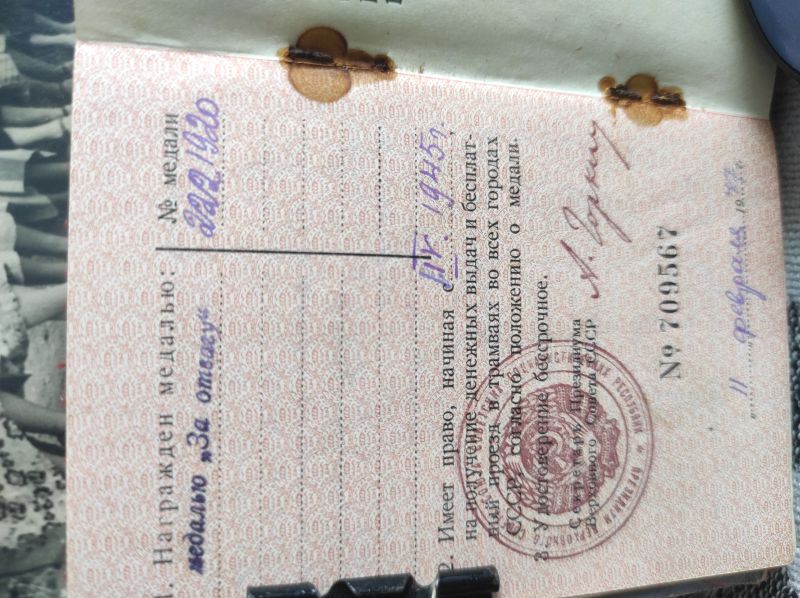 1. Награжден медалью: № медали
медалью „За отвагу“ 2221920
2. Имеет право, начиная с 1945 г.
на получение денежных выдач и бесплат-
ный проезд в трамваях во всех городах
СССР, согласно положению о медали.
3. Удостоверение бессрочное.
Секретарь Президиума
Верховного Совета СССР А. Горкин
№ 709567
11 февраля 19